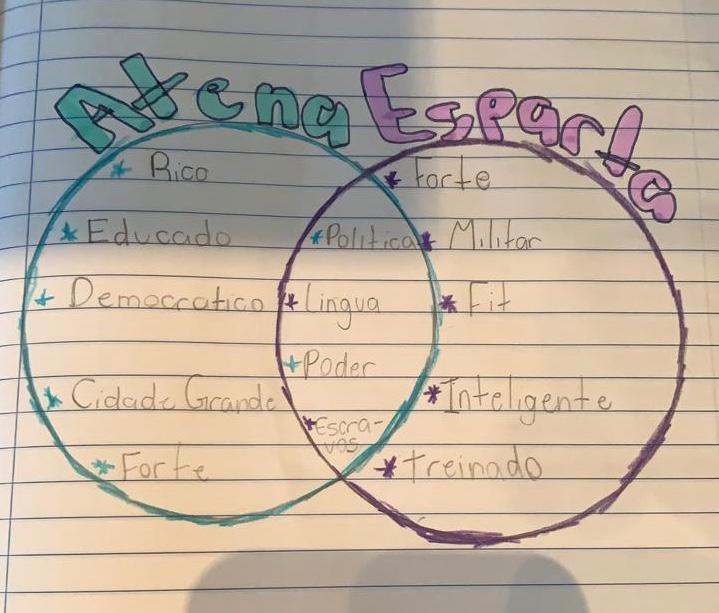 Atena Esparta
* Rico
* Educado
* Democratico
* Cidade Grande
* Forte
* Politica
* Lingua
* Poder
* Escra-
vos
* Forte
* Militar
* Fit
* Inteligente
* treinado